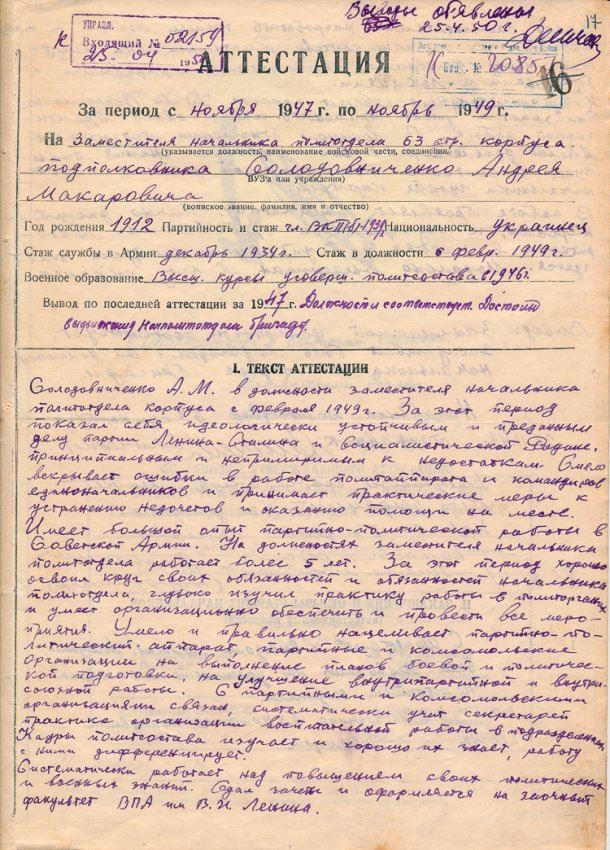 Выводы объявлены
25.4.50 г.
17
УПРАВЛ.
Входящий № 02154
25 04 195
2085
16
АТТЕСТАЦИЯ
За период с ноября 1947 г. по ноябрь 1949 г.
На Заместителя начальника политотдела 63 стр. корпуса
(указывается должность, наименование войсковой части, соединения,
подполковника Солодовниченко Андрея
ВУЗ'а или учреждения)
Макаровича
(воинское звание, фамилия, имя и отчество)
Год рождения 1912 Партийность и стаж чл. ВКП(б) 1939 Национальность украинец
Стаж службы в Армии декабрь 1934 г. Стаж в должности с февр. 1949 г.
Военное образование Высш. курсы усоверш. политсостава в 1946 г.
Вывод по последней аттестации за 1947 г. Должности соответствует. Достоин
выдвижения Начполитотдела бригады.
I. ТЕКСТ АТТЕСТАЦИИ
Солодовниченко А. М. в должности заместителя начальника
политотдела корпуса с февраля 1949 г. За этот период
показал себя идеологически устойчивым и преданным
делу партии Ленина-Сталина и Социалистической Родине.
принципиальным и непримиримым к недостаткам. Смело
вскрывает ошибки в работе политаппарата и командиров
единоначальников и принимает практические меры к
устранению недочетов и оказанию помощи на месте.
Имеет большой опыт партийно-политической работы в
Советской Армии. На должностях заместителя начальника
политотдела работает более 5 лет. За этот период хорошо
освоил круг своих обязанностей и обязанностей начальника
политотдела, глубоко изучил практику работы в политорганах
и умеет организационно обеспечить и провести все меро-
приятия. Умело и правильно нацеливает партийно-по-
литический аппарат, партийные и комсомольские
организации на выполнение планов боевой и политичес-
кой подготовки, на улучшение внутрипартийной и внутри-
союзной работы. С партийными и комсомольскими
организациями связан, систематически учит секретарей
практике организации воспитательной работы в подразделениях.
Кадры политсостава изучает и хорошо их знает, работу
с ними дифференцирует.
Систематически работает над повышением своих политических
и военных знаний. Сдал зачеты и оформляется на заочный
факультет ВПА им В. И. Ленина.